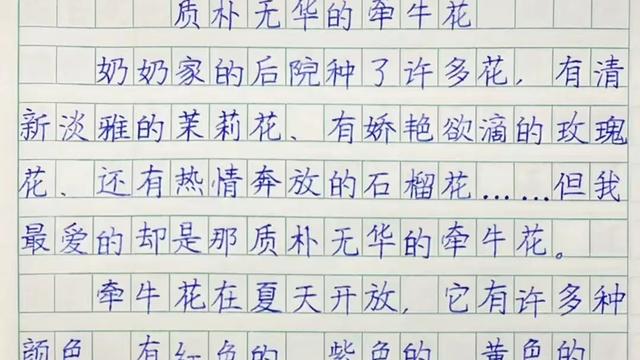 质朴无华的牵牛花
奶奶家的后院种了许多花，有清
新淡雅的茉莉花、有娇艳欲滴的玫瑰
花、还有热情奔放的石榴花……但我
最爱的却是那质朴无华的牵牛花。
牵牛花在夏天开放，它有许多种
颜色，有红色的、紫色的、黄色的